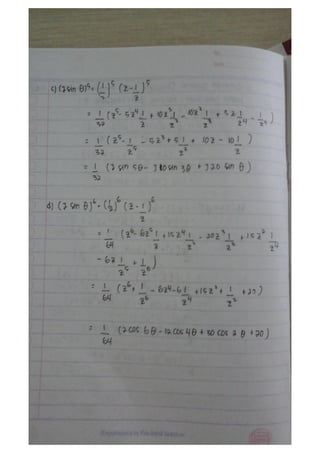 c) (2 sin θ)⁵ = (1/2)⁵ (z - 1/z)⁵
= 1/32 (z⁵ - 5z⁴ 1/z + 10z³ 1/z² - 10z² 1/z³ + 5z 1/z⁴ - 1/z⁵)
= 1/32 (z⁵ - 1/z⁵ - 5z³ + 5 1/z³ + 10z - 10 1/z)
= 1/32 (2 sin 5θ - j10 sin 3θ + j20 sin θ)
d) (2 sin θ)⁶ = (1/2)⁶ (z - 1/z)⁶
= 1/64 (z⁶ - 6z⁵ 1/z + 15z⁴ 1/z² - 20z³ 1/z³ + 15z² 1/z⁴
- 6z 1/z⁵ + 1/z⁶)
= 1/64 (z⁶ + 1/z⁶ - 6z⁴ - 6 1/z⁴ + 15z² + 1/z² + 20)
= 1/64 (2 cos 6θ - 12 cos 4θ + 30 cos 2θ + 20)